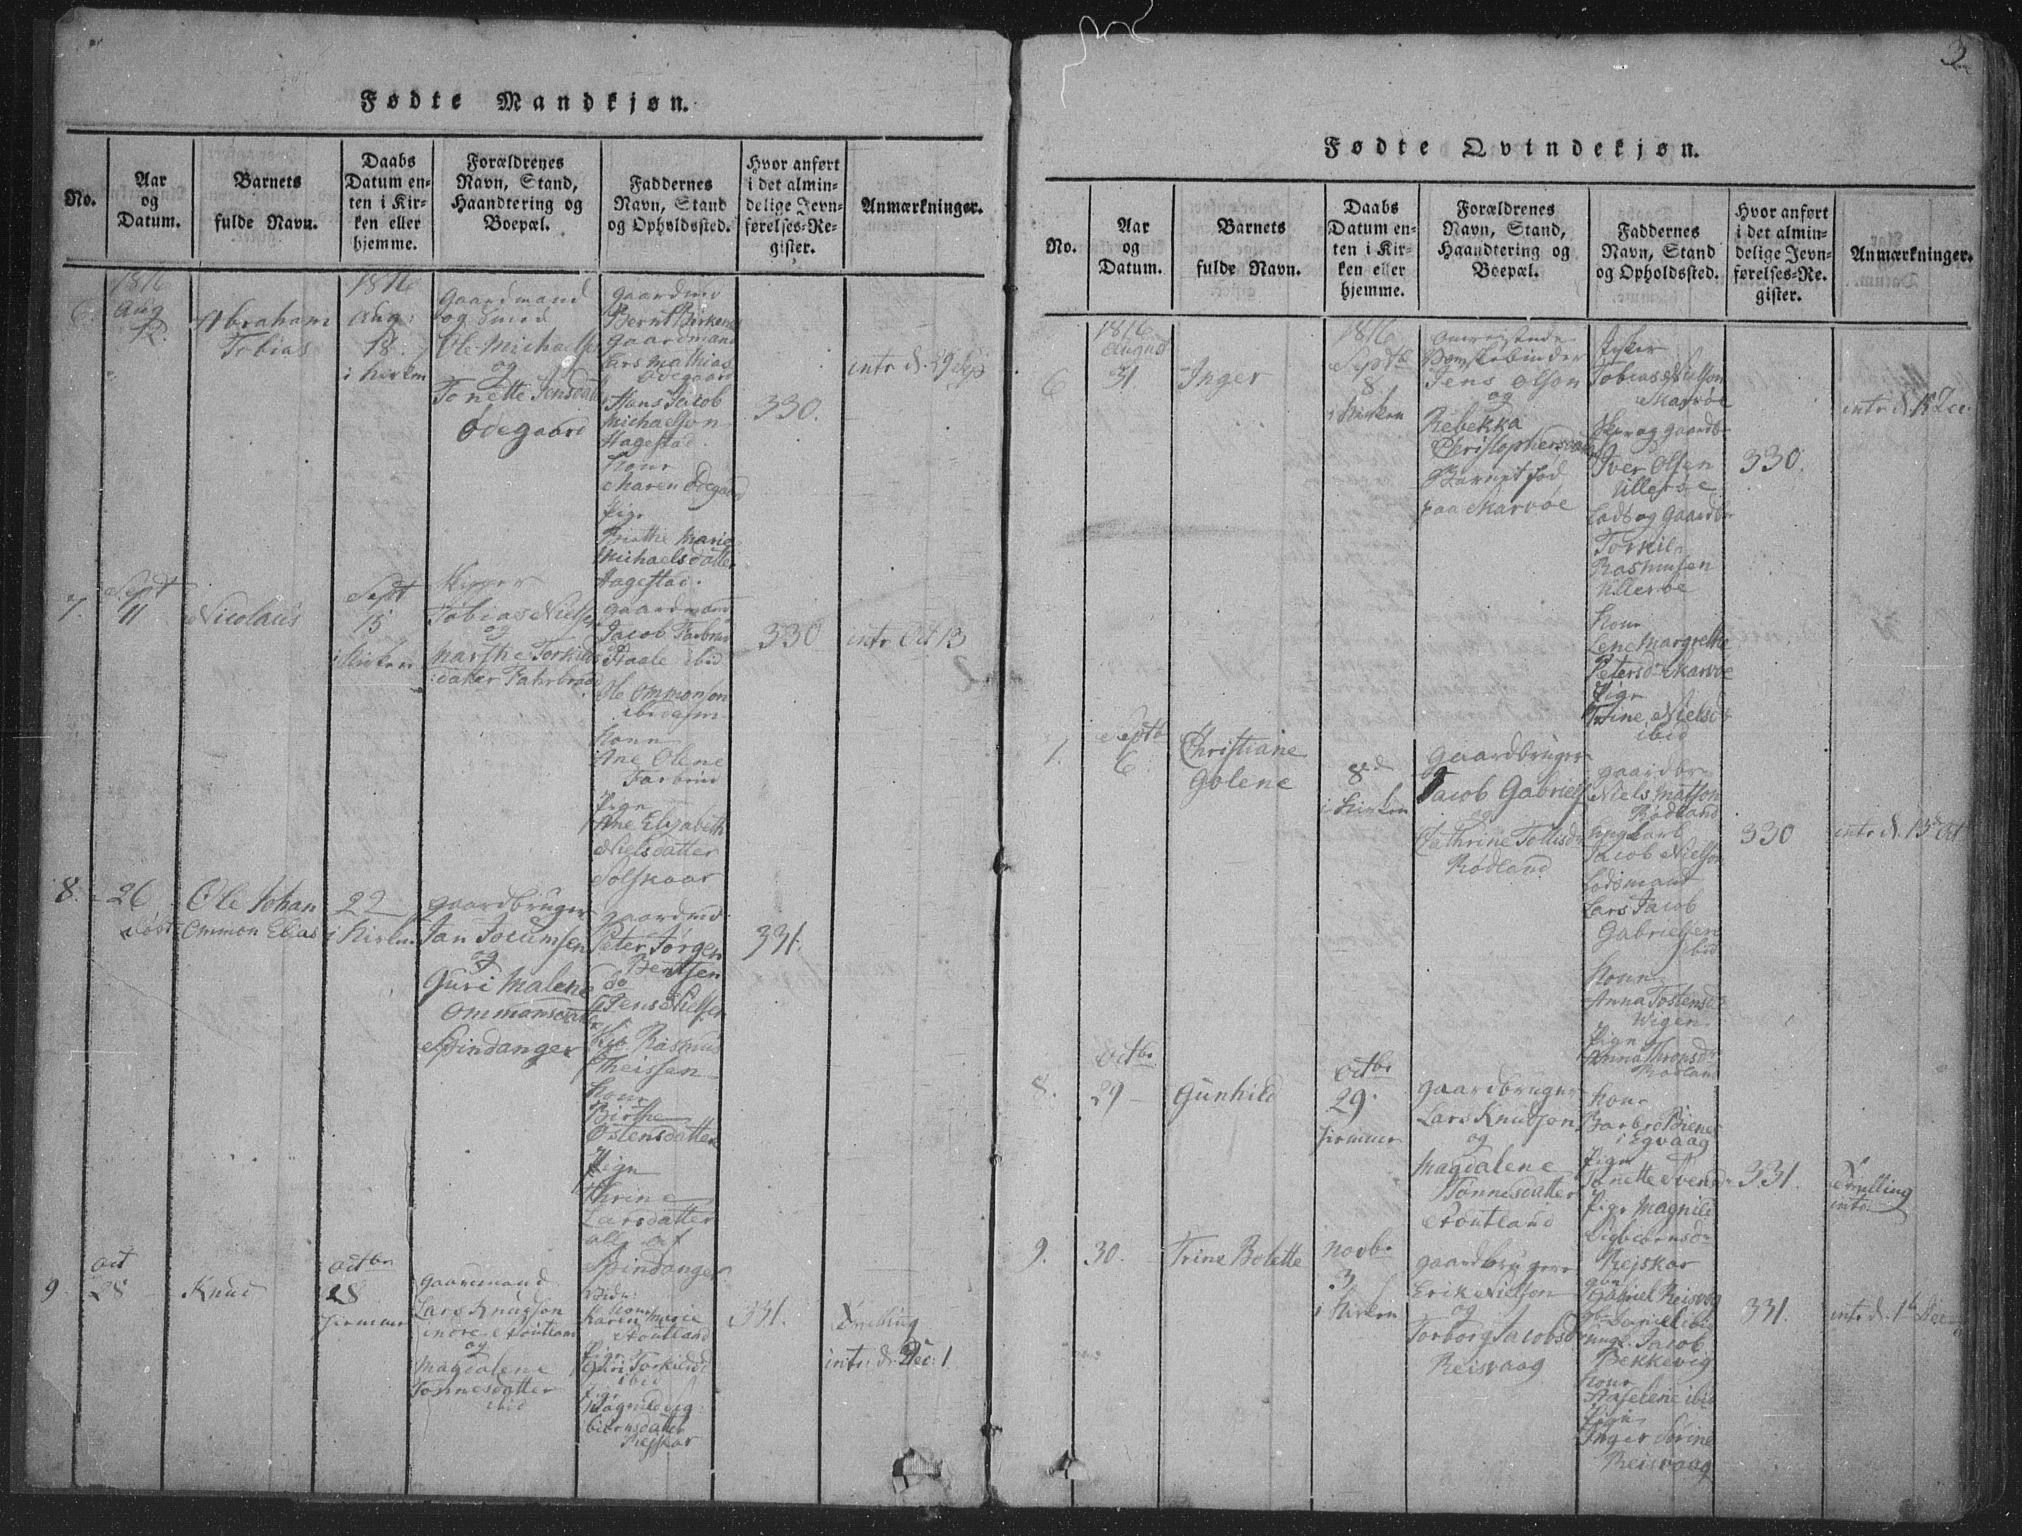 3
Fødte Mandkjøn.
No.
Aar
og
Datum.
Barnets
fulde Navn.
Daabs
Datum en-
ten i Kir-
ken eller
hjemme.
Forældrenes
Navn, Stand,
Haandtering og
Boepæl.
Faddernes
Navn, Stand
og Opholdssted.
Hvor anført
i det almin-
delige Jevn-
førelses-Re-
gister.
Anmærkninger.
6
1816
Aug
12.
Abraham
Tobias
1816
Aug:
18.
i Kirken
Gaardmand
og Smed
Ole Michaelsen
og
Tonette Jensdatt
Odegaard
Gaardmd
Bernt Birkenes
Gaardmand
Lars Mathias
Odegaar
Hans Jacob
Michaelson
Hagestad.
Kone
Maren Odegaard
Pige
Birthe Marie
Michaelsdatter
Hagestad.
330.
intr d. 29 Sep
7.
Sept
11
Nicolaus
Sept
15
i Kirken
Skipper
Tobias Nielsen
og
Marthe Torkilds
datter Fahrbrod
Gaardmand
Jacob Farbrod
Staale ibid
Ole Ommonson
ibidem
Kone
Ane Olene
Farbrod
Pige
Ane Elisabeth
Nielsdatter
Solskaar
330
intr Oct 13
8.
26
døbt
Ole Johan
Ommon Elias
22
i Kirken
Gaardbruger
Jan Jocumsen
og
Guri Malene
Ommonsdatter
Spindanger
Gaardmd.
Peter Jørgen
Bentsen
do
Jens Nielsen
Rasmus
Theissen
Kone
Birthe
Ostensdatter
Pige
Thrine
Larsdatter
alle af
Spindanger
331.
9
Oct
28
Knud
Octbr
28
hjemme
Gaardmand
Lars Knudson
indre
og
Magdalene
Tonnesdatter
ibid
Kone
Karen Marie
Pige
Guri Torkildsd
ibid
Pige
Magnild Sig:
biørnsdatter
Rejskar
331.
Tvilling
intr: d. Dec: 1
Fødte Qvindekjøn.
No.
Aar
og
Datum.
Barnets
fulde Navn.
Daabs
Datum en-
ten i Kir-
ken eller
hjemme.
Forældrenes
Navn, Stand,
Haandtering og
Boepæl.
Faddernes
Navn, Stand
og Opholdssted.
Hvor anført
i det almin-
delige Jevn-
førelses-Re-
gister.
Anmærkninger.
6
1816
August
31.
Inger
1816
Septbr
8
i Kirken
omreisende
Jens Olson
og
Rebekka
Christophersdatter
Barnet fød
paa Skarvøe
Fisker
Tobias Nielson
Skarvøe
Skip og Gaardbr
Iver Olsen
Ullerøe
Lods og Gaardbr
Torkil
Rasmusen
Ullerøe
Kone
Lene Margrethe
Petersd Skarvøe
Pige
Trine Nielsd
ibid
330.
7.
Septb
6
Christiane
Golene
8de
i Kirken
Gaardbruger
Jacob Gabriels
og
Cathrine Tollisd
Rødland
Gaardbr
Niels Matson
Rødland
Ungkarl
Jacob Nielson
Lodsmand
Lars Jacob
Gabrielsen
ibid
Kone
Anna Tostensd
Wigen
Pige
Anna Thronsd
Rødland
330
intr d. 13de Oct
8.
Octbr
29
Gunhild
Octbr
29.
hjemme
Gaardbruger
Lars Knudson
og
Magdalene
Tonnesdatter
Kone
Barbro Bienes
i Egvaag
Pige
Tonette Svend
Pige Magnild
Sigbiørnsd
Rejskar
331.
Tvilling
intr
9.
30.
Trine Bolette
Novbr
3
i Kirken
Gaardbruger
Erik Nielson
og
Torborg Jacobsd
Reisvaag
Gabriel Reisvaag
Daniel ibid
ungk. Jacob
Bekkevig
Kone
Aaselene ibid
Pige
Inger Sørine
Reisvaag
331.
intr d. 1ste Dec